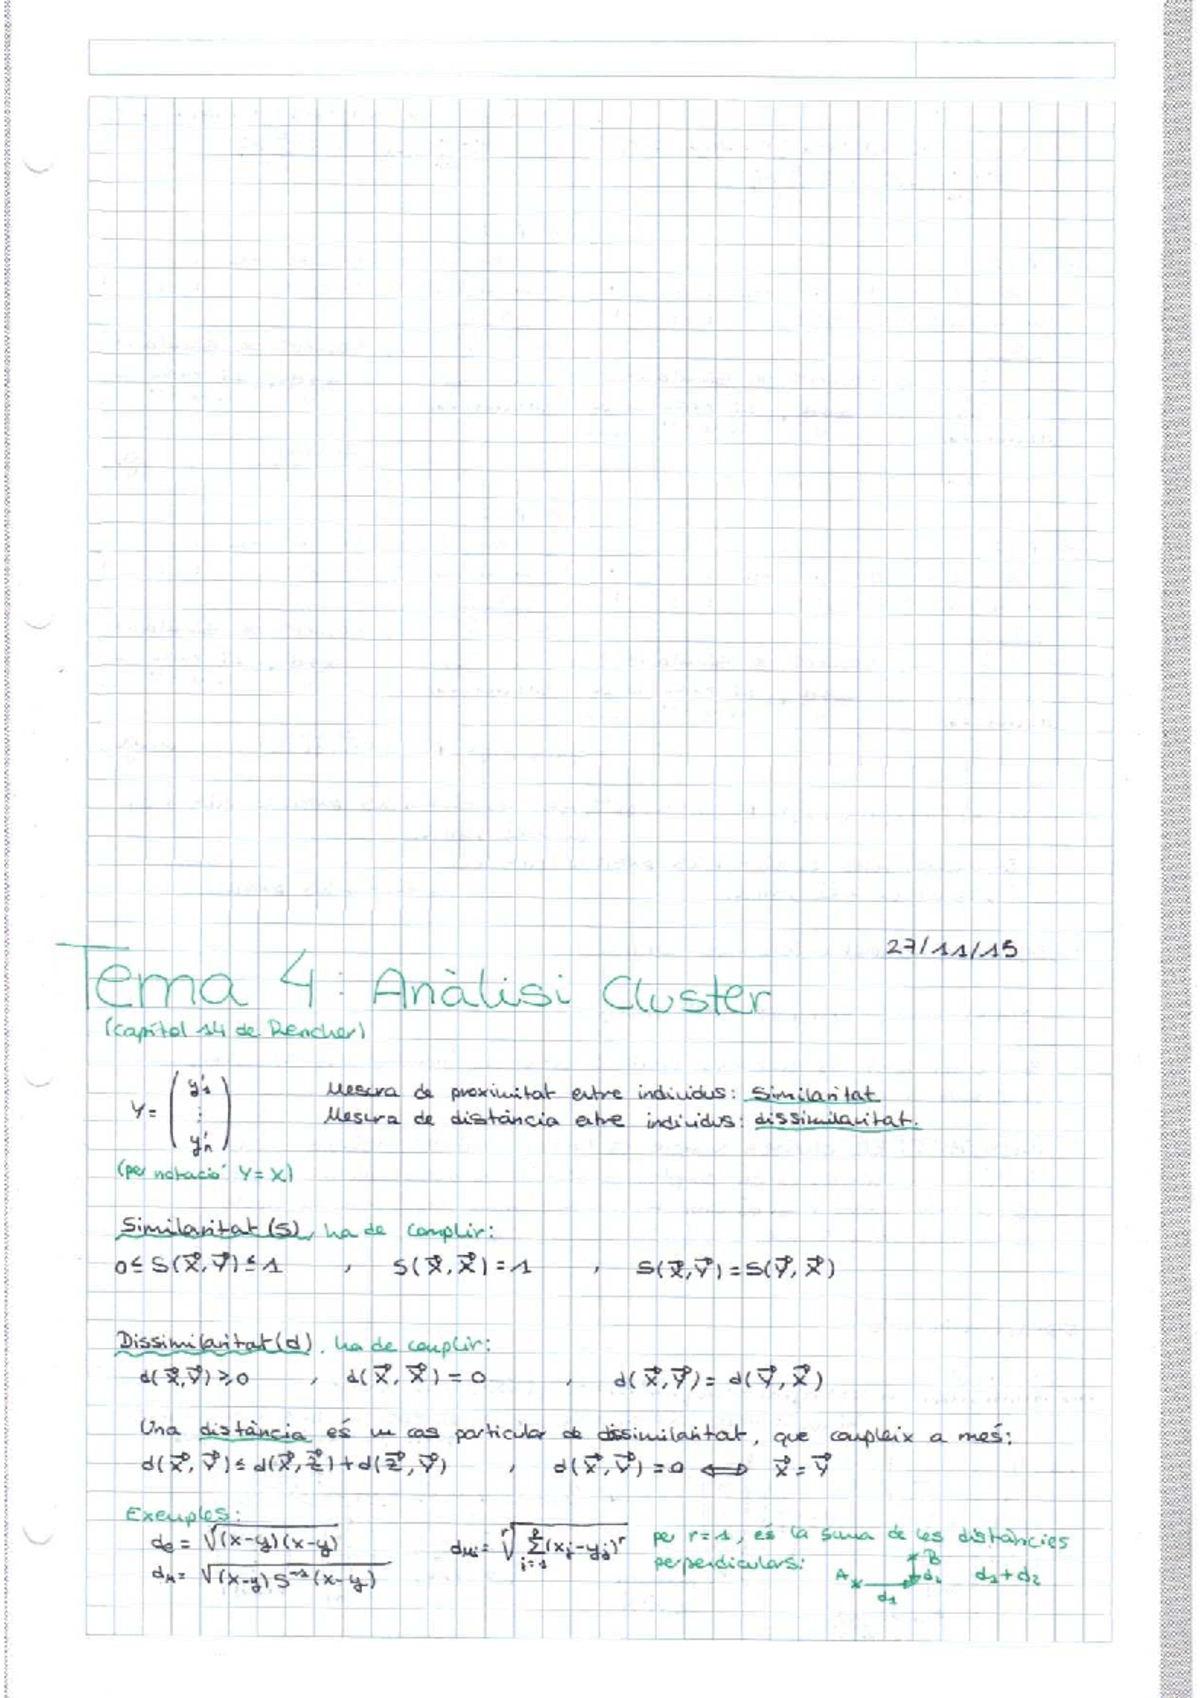 27/11/15
Tema 4: Anàlisi Cluster
(Capítol 14 de Rencher)
Y = ( y'1 ⋮ y'n )
Mesura de proximitat entre individus: Similaritat
Mesura de distància entre individus: dissimilaritat.
(per notació Y = X)
Similaritat (S), ha de complir:
0 ≤ S(x⃗, y⃗) ≤ 1 , S(x⃗, x⃗) = 1 , S(x⃗, y⃗) = S(y⃗, x⃗)
Dissimilaritat (d), ha de complir:
d(x⃗, y⃗) ≥ 0 , d(x⃗, x⃗) = 0 , d(x⃗, y⃗) = d(y⃗, x⃗)
Una distància és un cas particular de dissimilaritat, que compleix a més:
d(x⃗, y⃗) ≤ d(x⃗, z⃗) + d(z⃗, y⃗) , d(x⃗, y⃗) = 0 ⟺ x⃗ = y⃗
Exemples:
de = √(x-y)(x-y)
dM = √(x-y) S⁻¹ (x-y)
dMi = ʳ√ Σ j=1 p (xj - yj)ʳ
per r = 1, és la suma de les distàncies
perpendiculars: A d1 d2 B d1 + d2